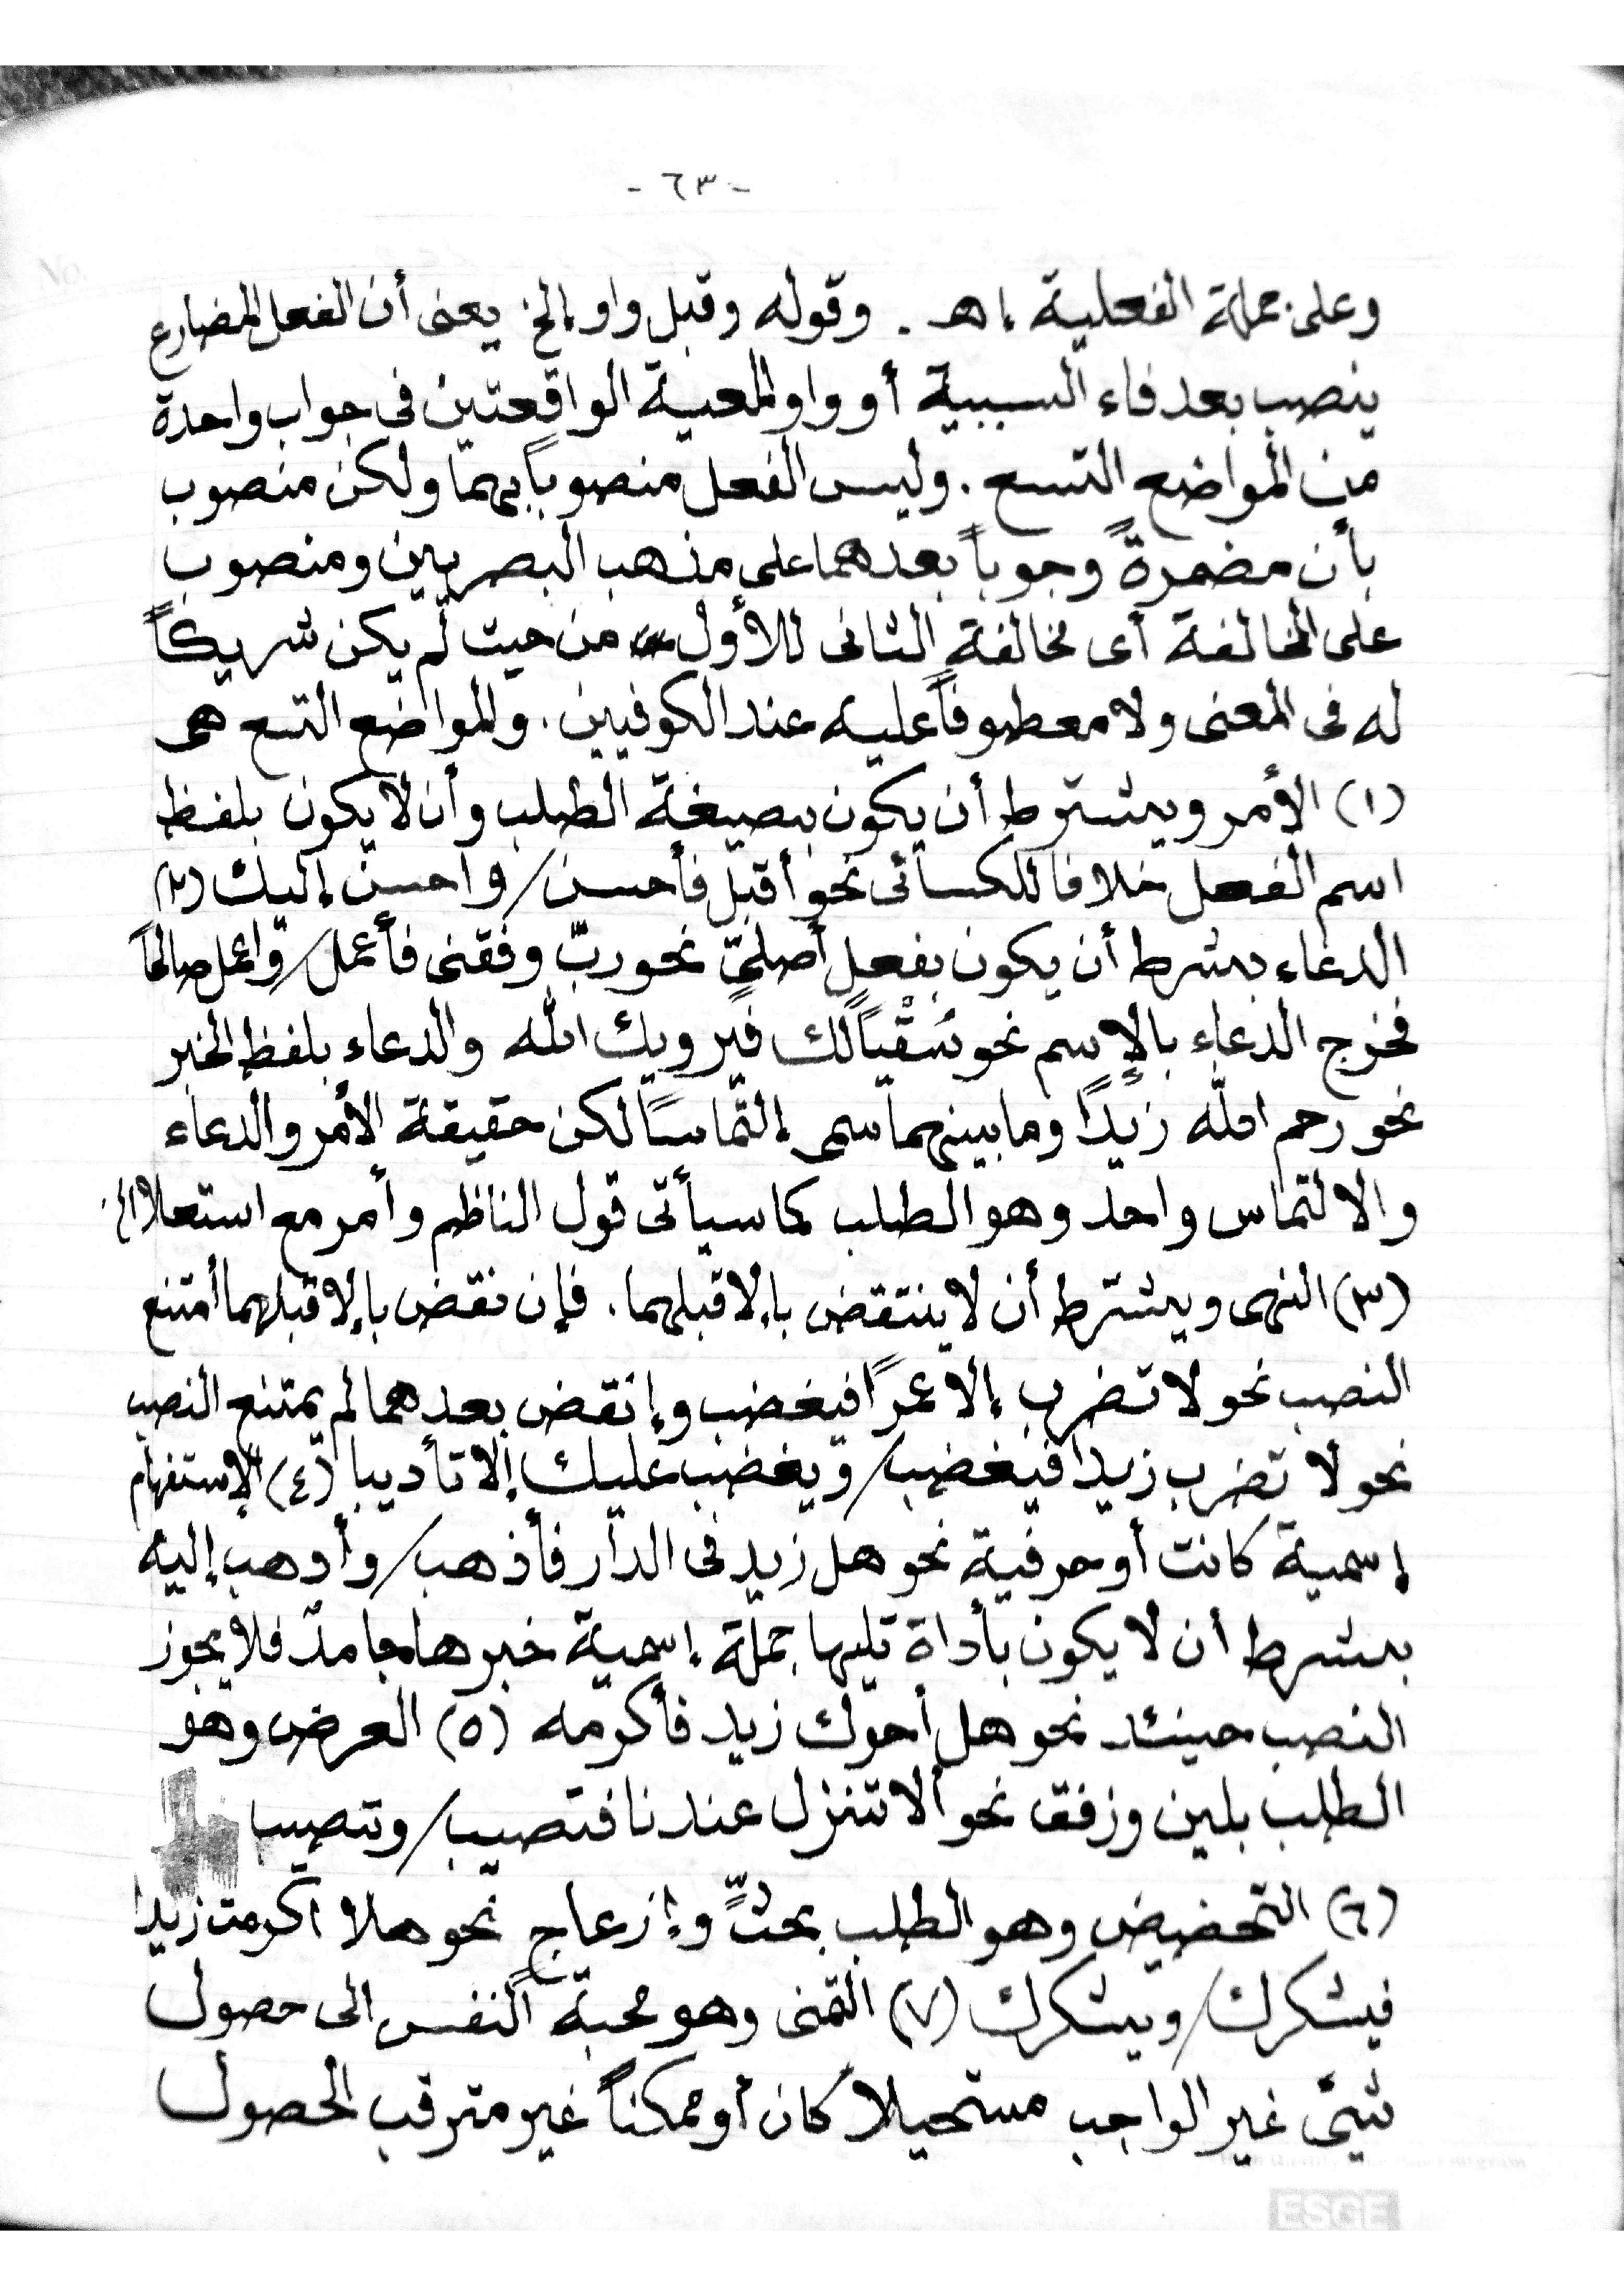 - ٦٣ -
وعلى جملة الفعلية ا‌هـ . وقوله وقبل واو إلخ يعنى أن الفعل المضارع
ينصب بعد فاء السببية أو واو المعية الواقعتين فى جواب واحدة
من المواضع التسع . وليس الفعل منصوباً بهما ولكن منصوب
بأن مضمرةً وجوباً بعدهما على مذهب البصريين ومنصوب
على المخالفة أى مخالفة الثانى للأول من حيث لم يكن شريكاً
له فى المعنى ولا معطوفاً عليه عند الكوفيين . والمواضع التسع هى
(١) الأمر ويشترط أن يكون بصيغة الطلب وأن لا يكون بلفظ
اسم الفعل خلافا للكسائى نحو أقبل فأحسن / واحسن إليك (٢)
الدعاء بشرط أن يكون بفعل أصلىّ نحو ربّ وفقنى فأعمل / واعمل صالحاً
فخرج الدعاء بالإسم نحو سُقْيًا لك فيرويك الله والدعاء بلفظ الخبر
نحو رحم الله زيدًا وما بينهما سمى إلتماسًا لكن حقيقة الأمر والدعاء
والالتماس واحد وهو الطلب كما سيأتى قول الناظم وأمر مع استعلا الخ
(٣) النهى ويشترط أن لا ينتقض بإلا قبلهما . فإن نقض بإلا قبلهما أمتنع
النصب نحو لا تضرب إلا عمرًا فيغضب وإنقض بعدهما لم يمتنع النصب
نحو لا تضرب زيدا فيغضب / ويغضب عليك إلا تأديبا (٤) الإستفهام
إسمية كانت أو حرفية نحو هل زيد فى الدار فأذهب / وأدهب إليه
بشرط أن لا يكون بأداة تليها جملة إسمية خبرها جامدٌ فلا يجوز
النصب حينئد نحو هل أحوك زيد فأكرمه (٥) العرض وهو
الطلب بلين وزفق نحو ألا تنزل عندنا فتصيب / وتصيب
(٦) التحضيض وهو الطلب بحثٍّ وإزعاج نحو هلا أكرمت زيدا
فيشكرك / ويشكرك (٧) التمنى وهو محبة النفس إلى حصول
شيئ غير الواجب مستحيلاً كان أو ممكناً غير مترقب الحصول
ESGE